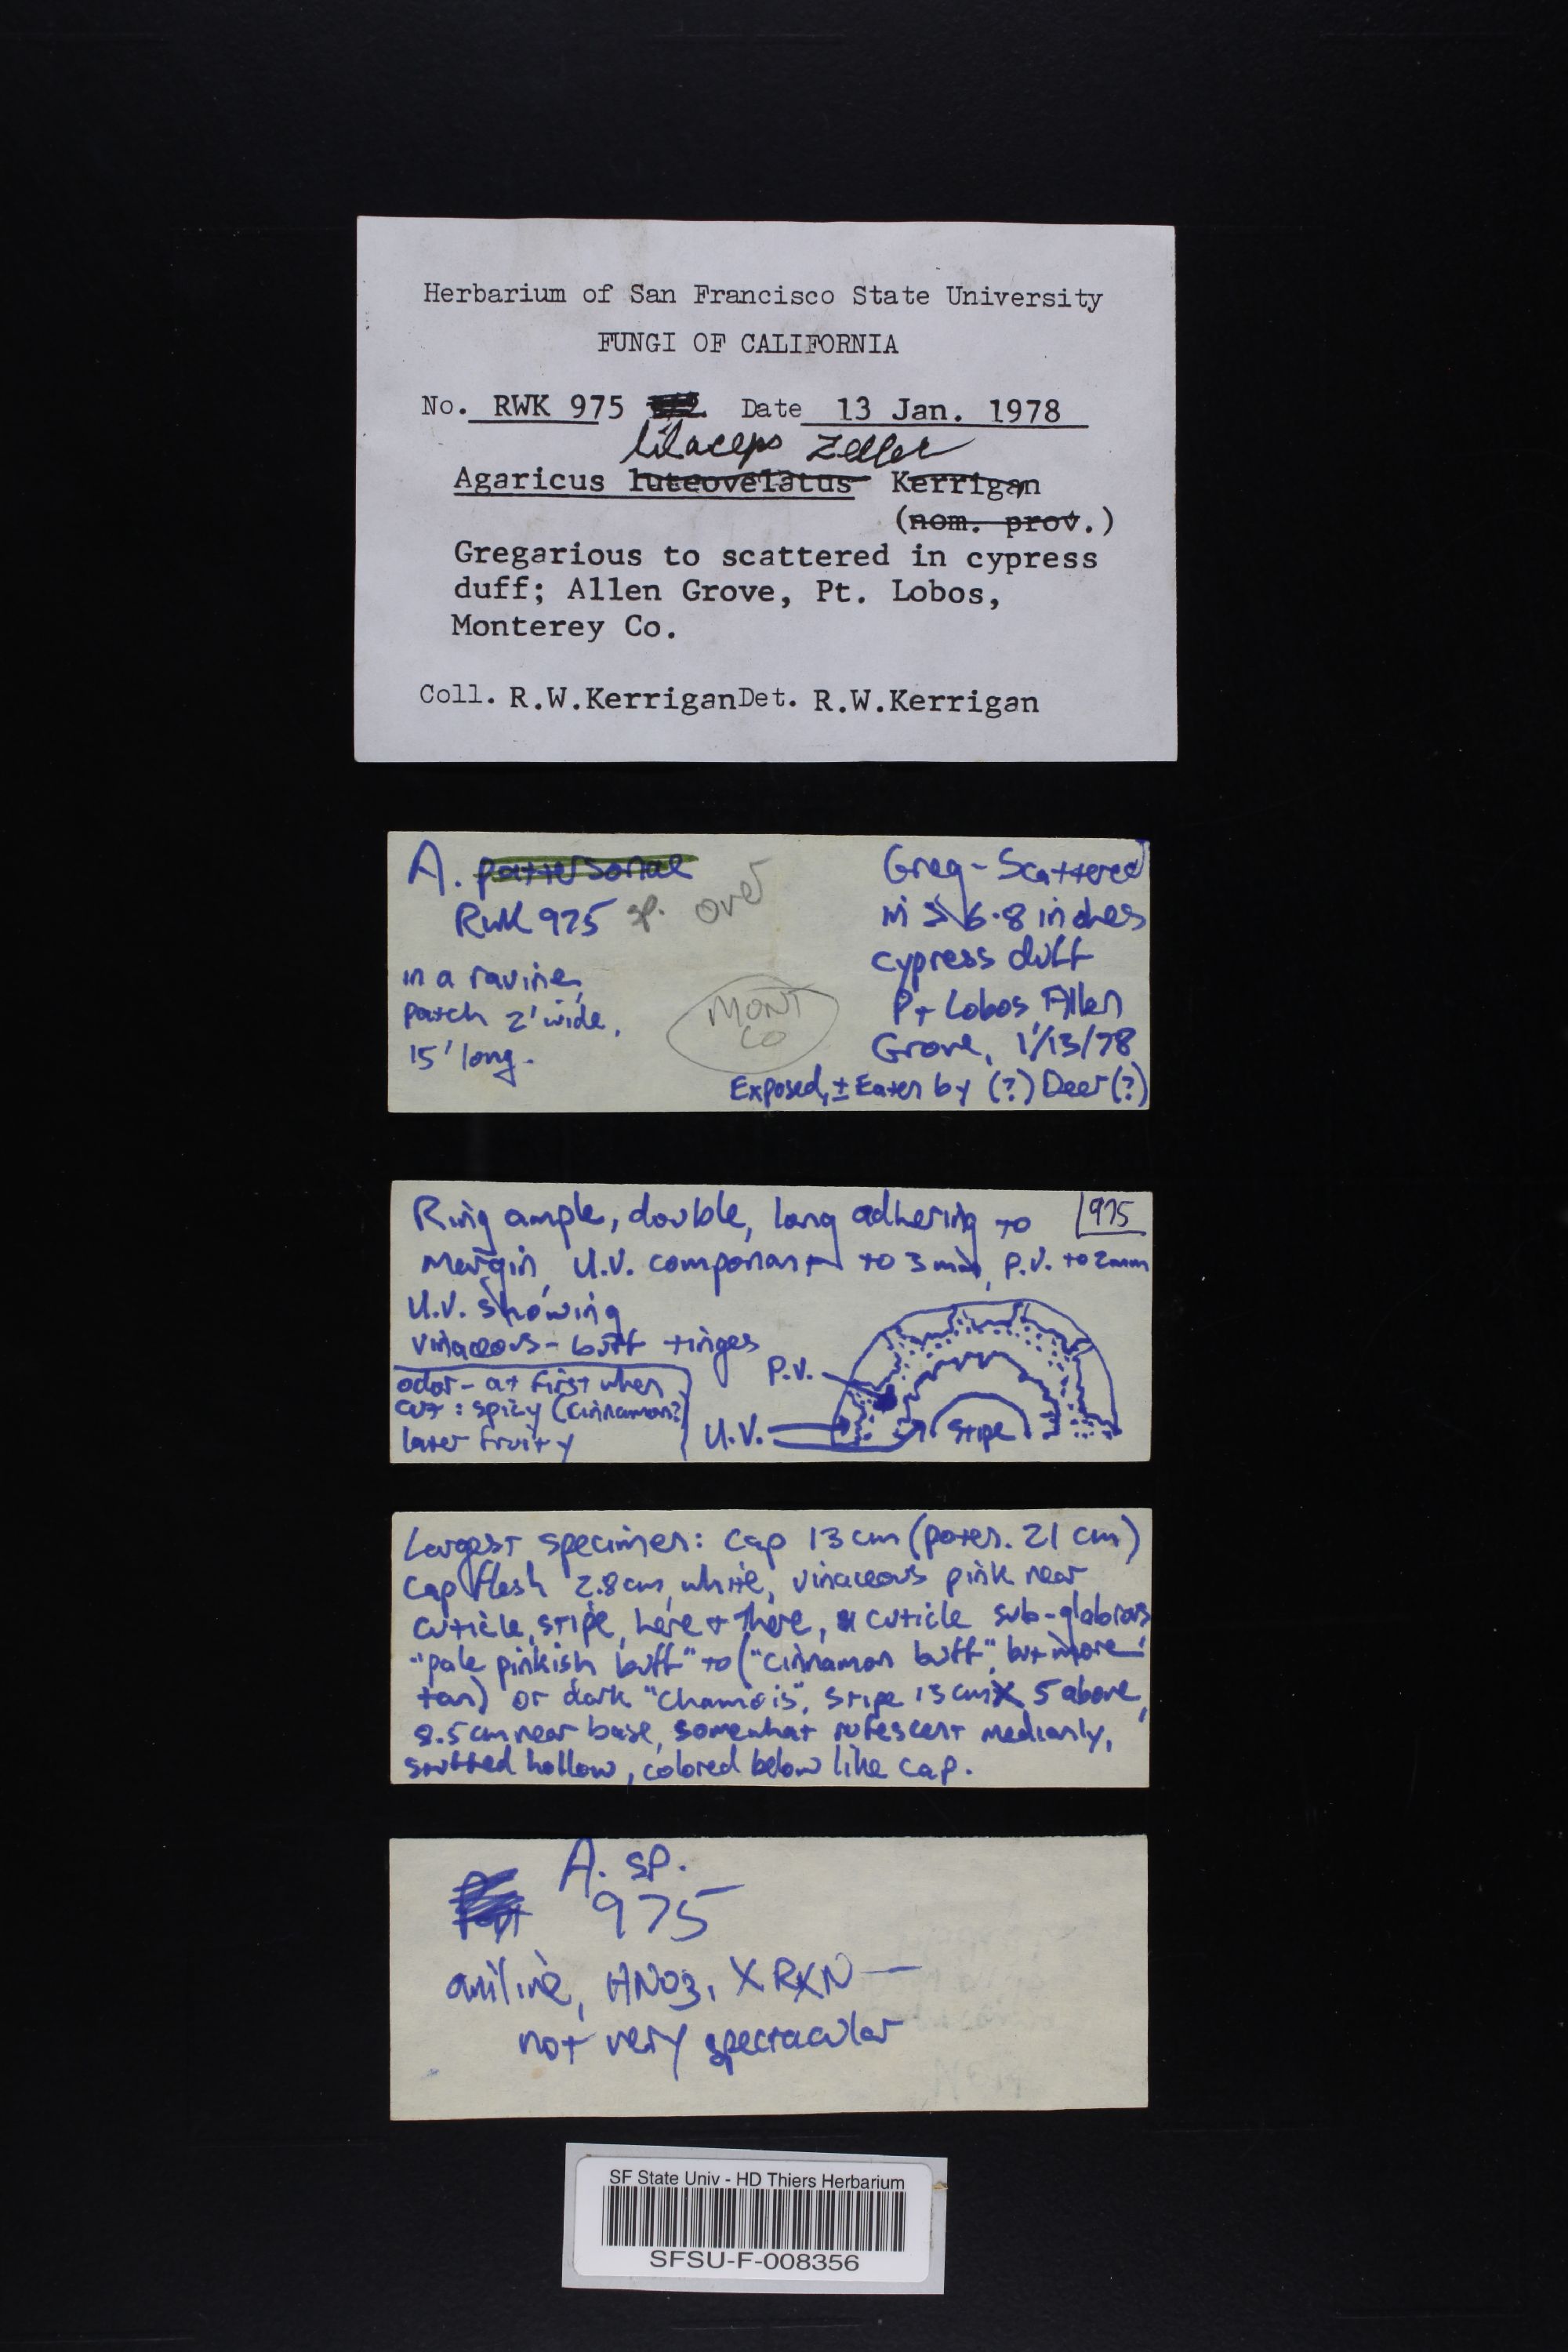 Herbarium of San Francisco State University
FUNGI OF CALIFORNIA
No. RWK 975 Date 13 Jan. 1978
lilaceps Zeller
Agaricus luteovelatus Kerrigan
(nom. prov.)
Gregarious to scattered in cypress
duff; Allen Grove, Pt. Lobos,
Monterey Co.
Coll. R.W.Kerrigan Det. R.W.Kerrigan
A. pattersonae
RWK 975 sp. over
in a ravine,
patch 2' wide,
15' long.
MONT
CO
Greg-Scattered
in 6-8 inches
cypress duff
Pt Lobos, Allen
Grove, 1/13/78
Exposed, ± Eaten by (?) Deer (?)
Ring ample, double, long adhering to
975
margin, U.V. component to 3 mm, P.V. to 2mm
U.V. showing
vinaceous-buff tinges
odor- at first when
cut: spicy (cinnamon?)
later fruity
P.V.
U.V.
stipe
Largest specimen: cap 13 cm (poten. 21 cm)
cap flesh 2.8 cm, white, vinaceous pink near
cuticle, stipe, here + there, cuticle sub-glabrous
"pale pinkish buff" to ("cinnamon buff", but more
tan) or dark "chamois", stipe 13 cm X 5 above,
8.5 cm near base, somewhat rufescent medianly,
stuffed hollow, colored below like cap.
A. sp.
975
aniline, HNO3, X RXN —
not very spectacular
SF State Univ - HD Thiers Herbarium
SFSU-F-008356